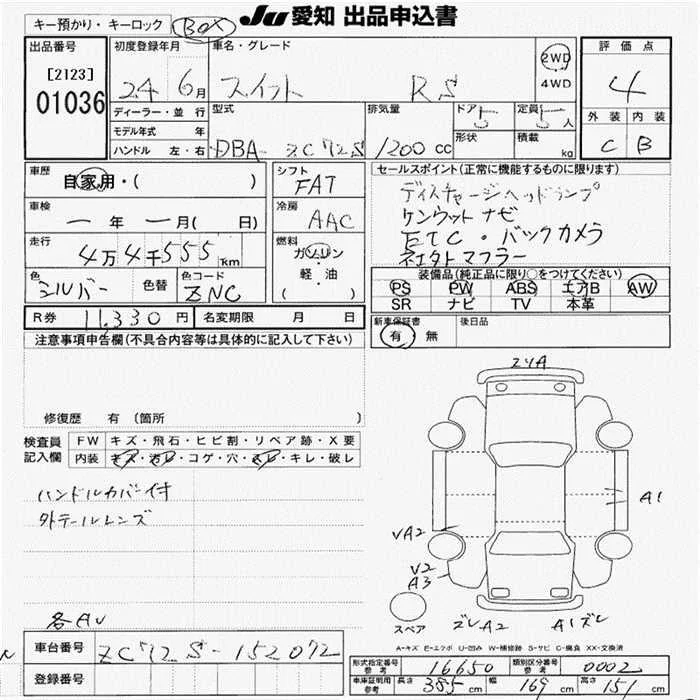 キー預かり・キーロック BOX
JU 愛知 出品申込書
出品番号
[2123]
01036
初度登録年月
24 6月
車名・グレード
スイフト RS
2WD
4WD
評価点
4
外装 内装
C B
ディーラー・並行
モデル年式 年
ハンドル 左・右
型式
DBA- ZC72S
排気量
1200 cc
ドア 5
形状
定員 5人
積載 kg
車歴
自家用・( )
車検
— 年 — 月( 日)
走行
4万4千555km
色
シルバー
色替
色コード
ZNC
シフト
FAT
冷房
AAC
燃料
ガソリン
・
軽油
( )
R券 11,330円
名変期限 月 日
セールスポイント(正常に機能するものに限ります)
ディスチャージヘッドランプ
ケンウッド ナビ
ETC・バックカメラ
社外マフラー
装備品(純正品に限り○をつけてください)
PS PW ABS エアB AW
SR ナビ TV 本革
新車保証書
有・無
後日品
注意事項申告欄(不具合内容等は具体的に記入して下さい)
修復歴 有 (箇所 )
検査員
記入欄
FW キズ・飛石・ヒビ割・リペア跡・X要
内装 キズ・汚レ・コゲ・穴・スレ・キレ・破レ
ハンドルカバー付
外テールレンズ
各AU
A1
VA2
V2
A3
スペア
ズレA2
A1ズレ
A-キズ E-エクボ U-凹み W-補修跡 S-サビ C-腐食 XX-交換済
車台番号 ZC72S-152072
登録番号
形式指定番号
参考
16650
類別区分番号
参考
0002
車庫証明用
参考
長さ 385cm
幅 169cm
高さ 151cm